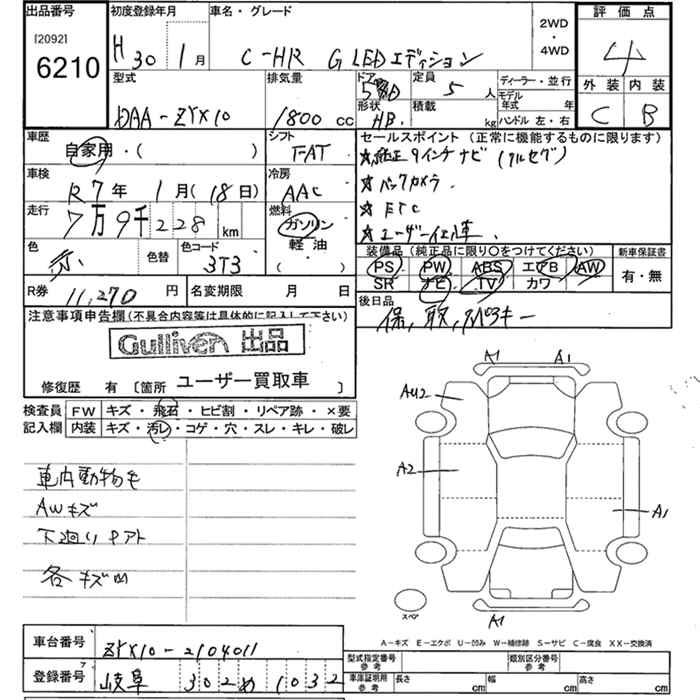 出品番号 初度登録年月 車名・グレード 2WD・4WD 評価点
[2092]
6210 H30 1月 C-HR G LEDエディション 4
型式 排気量 ドア 定員 ディーラー・並行 外装 内装
DAA-ZYX10 1800cc 5 5人 モデル年式 年 C B
形状 積載 HB kg ハンドル 左・右
車歴 シフト セールスポイント (正常に機能するものに限ります)
自家用・( ) FAT ☆純正9インチナビ(フルセグ)
車検 冷房 ☆バックカメラ
R7年1月(18日) AAC ☆ETC
走行 燃料 ☆ユーザー仕入車
7万9千228km ガソリン 軽油 ( )
色 色替 色コード 装備品 (純正品に限り○をつけてください) 新車保証書
赤 3T3 PS PW ABS エアB AW 有・無
SR ナビ TV カワ
R券 11,270円 名変期限 月 日 後日品
保、取、スペアキー
注意事項申告欄(不具合内容等は具体的に記入して下さい)
Gulliver 出品
修復歴 有 [箇所 ユーザー買取車 ]
検査員記入欄 FW キズ・飛石・ヒビ割・リペア跡・×要
内装 キズ・汚レ・コゲ・穴・スレ・キレ・破レ
A1 A1
AU2
車内動物毛 A2
AWキズ A1
下廻りサビアト
各キズ凹
スペア A1
A-キズ E-エクボ U-凹み W-補修跡 S-サビ C-腐食 XX-交換済
車台番号 ZYX10-2104011
型式指定番号 参考 類別区分番号 参考
登録番号 岐阜 302め1032
車庫証明用 参考 長さ cm 幅 cm 高さ cm